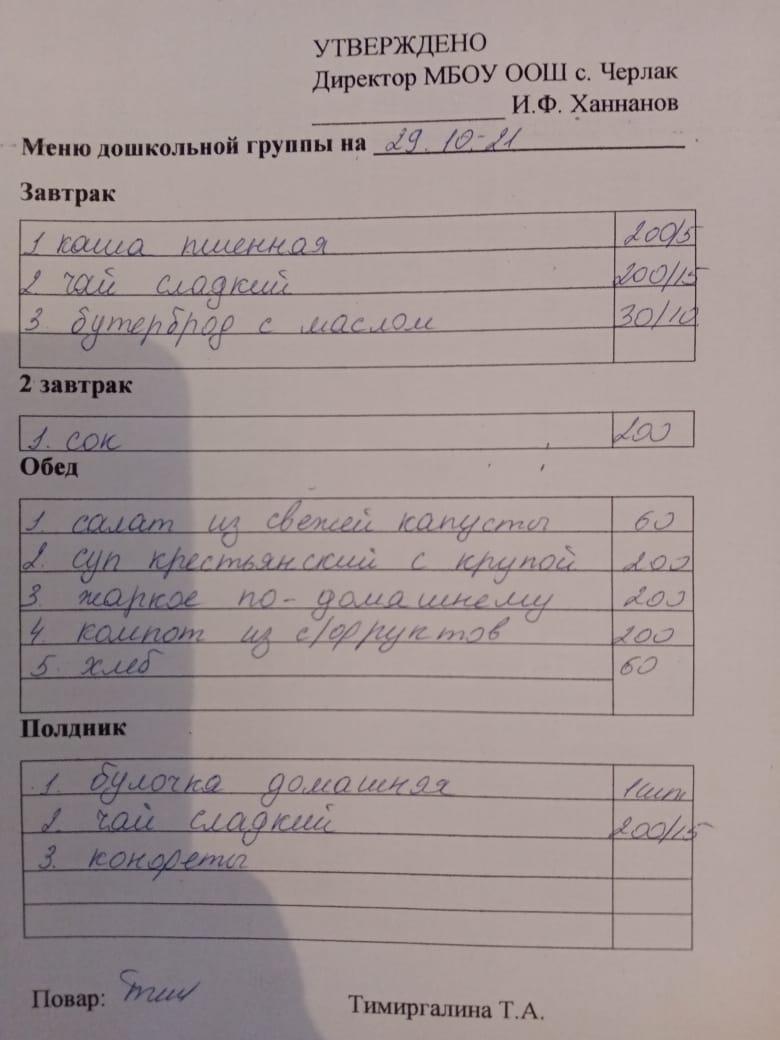 УТВЕРЖДЕНО
Директор МБОУ ООШ с. Черлак
И.Ф. Ханнанов
Меню дошкольной группы на 29.10-21
Завтрак
1 каша пшенная 200/5
2. чай сладкий 200/15
3. бутерброд с маслом 30/10
2 завтрак
1. сок 200
Обед
1. салат из свежей капусты 60
2. суп крестьянский с крупой 200
3. жаркое по-домашнему 200
4. компот из с/фруктов 200
5. хлеб 60
Полдник
1. булочка домашняя 1шт
2. чай сладкий 200/15
3. конфеты
Повар:
Тимиргалина Т.А.